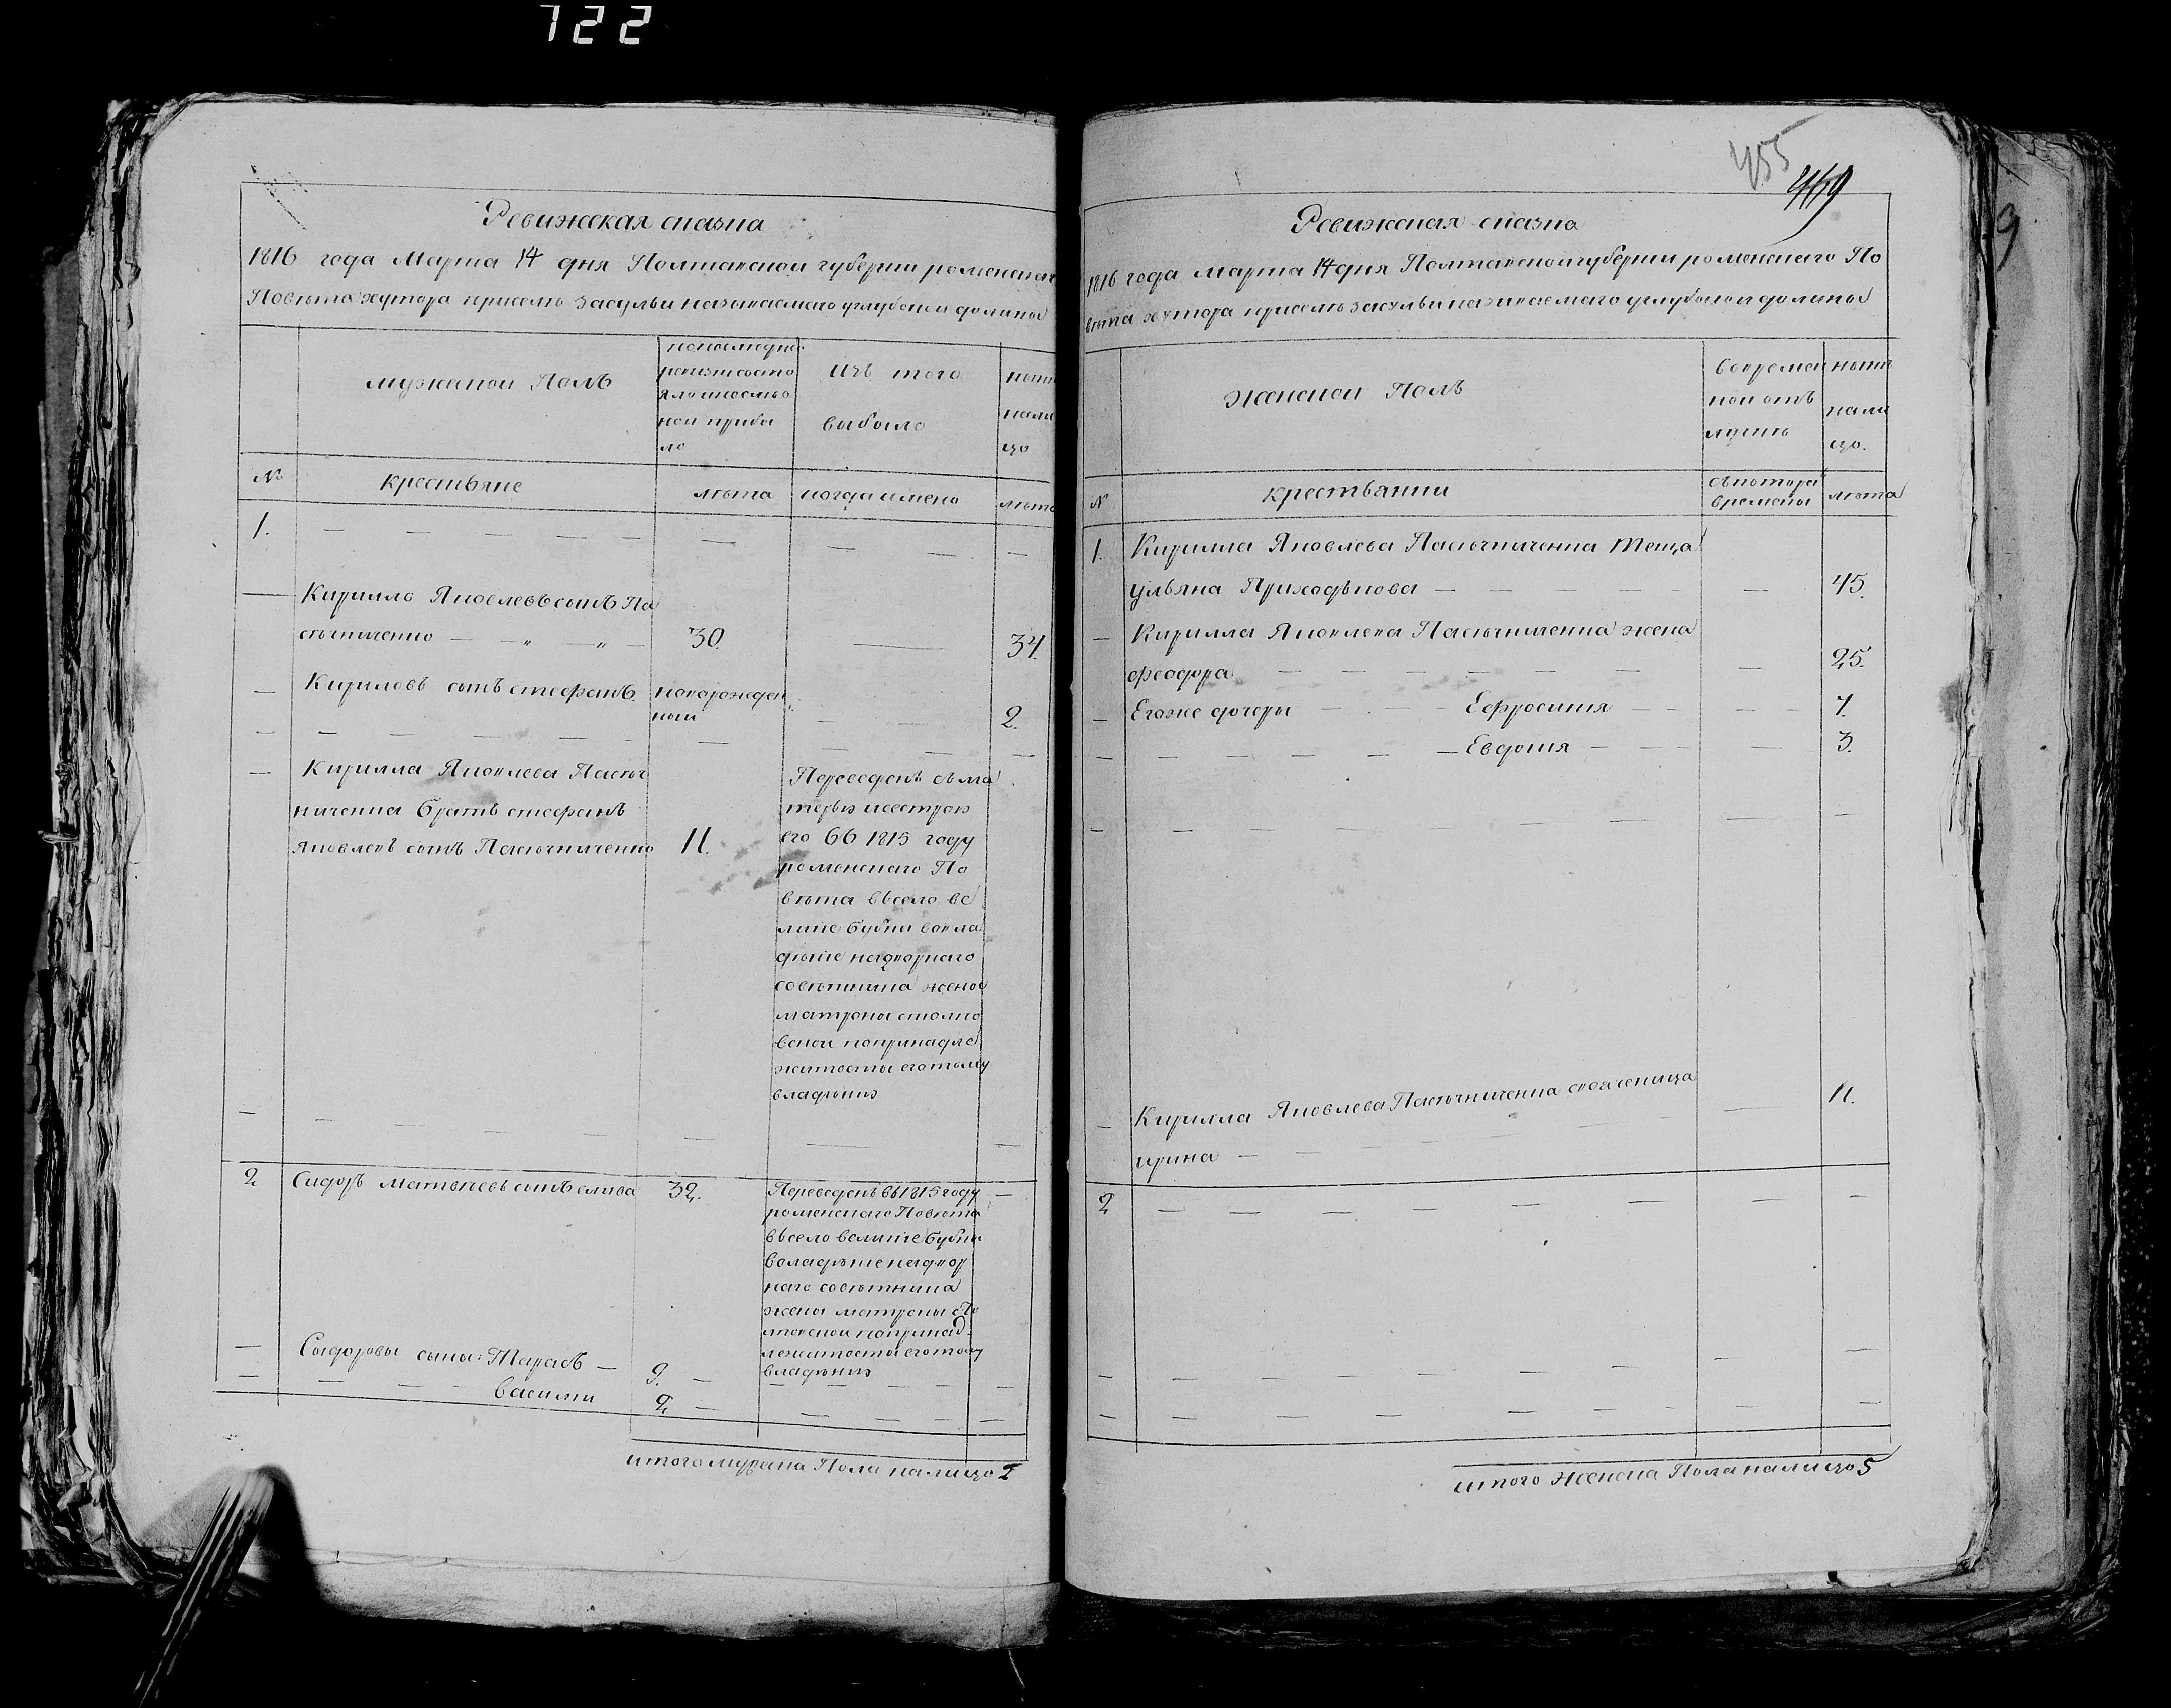 722
Ревижская сказка
1816 года Марта 14 дня Полтавской губернии роменскаго
Повѣта хутора присемъ Засульи называемаго углубокой долины
мужиской Полъ
попоследней
ревизіи состо
яло и после о
ной прибы
ло
Изъ того
выбыло
ныне
нали
цо
№
крестьяне
лѣта
когда имено
лѣта
1.
Кирилло Яковлевъ сынъ Па
сѣчниченко
30.
34.
Кириловъ сынъ стефанъ
новорожден
ный
2.
Кирилла Яковлева Пасѣч
ниченка братъ стефанъ
Яковлевъ сынъ Пасѣчниченко
11.
Переведенъ съ ма
терью и сестрою
его въ 1815 году
роменскаго По
вѣта въ село ве
ликіе бубны вовла
дѣніе надворнаго
совѣтника жены
матроны столпо
вской попринадле
житости его тому
владѣнію
2.
Сидоръ матвѣевъ сынъ слива
32.
Переведенъ въ 1815 году
роменскаго Повѣта
въ село великіе бубны
вовладѣніе надвор
наго совѣтника
жены матроны сто
лповской попринад
лежитости его тому
владѣнію
Сыдоровы сыны: Тарасъ
9.
василий
2.
итого мужска Пола налицо 2
455
459
9
Ревижская сказка
1816 года марта 14 дня Полтавской губернии роменскаго По
вѣта хутора присемъ засульи называемаго углубокой долины
женской Полъ
вовремен
ной отъ
лучке
ныне
нали
цо.
№
крестьянки
съкотора
времены
лѣта
1.
Кирилла Яковлева Пасѣчниченка теща
ульяна Приходькова
45.
Кирилла Яковлева Пасѣчниченка жена
феодора
25.
Егоже дочеры Ефросиния
7.
Евдокия
3.
Кирилла Яковлева Пасѣчниченка свояченица
ирина
11.
2
итого женска Пола налицо 5